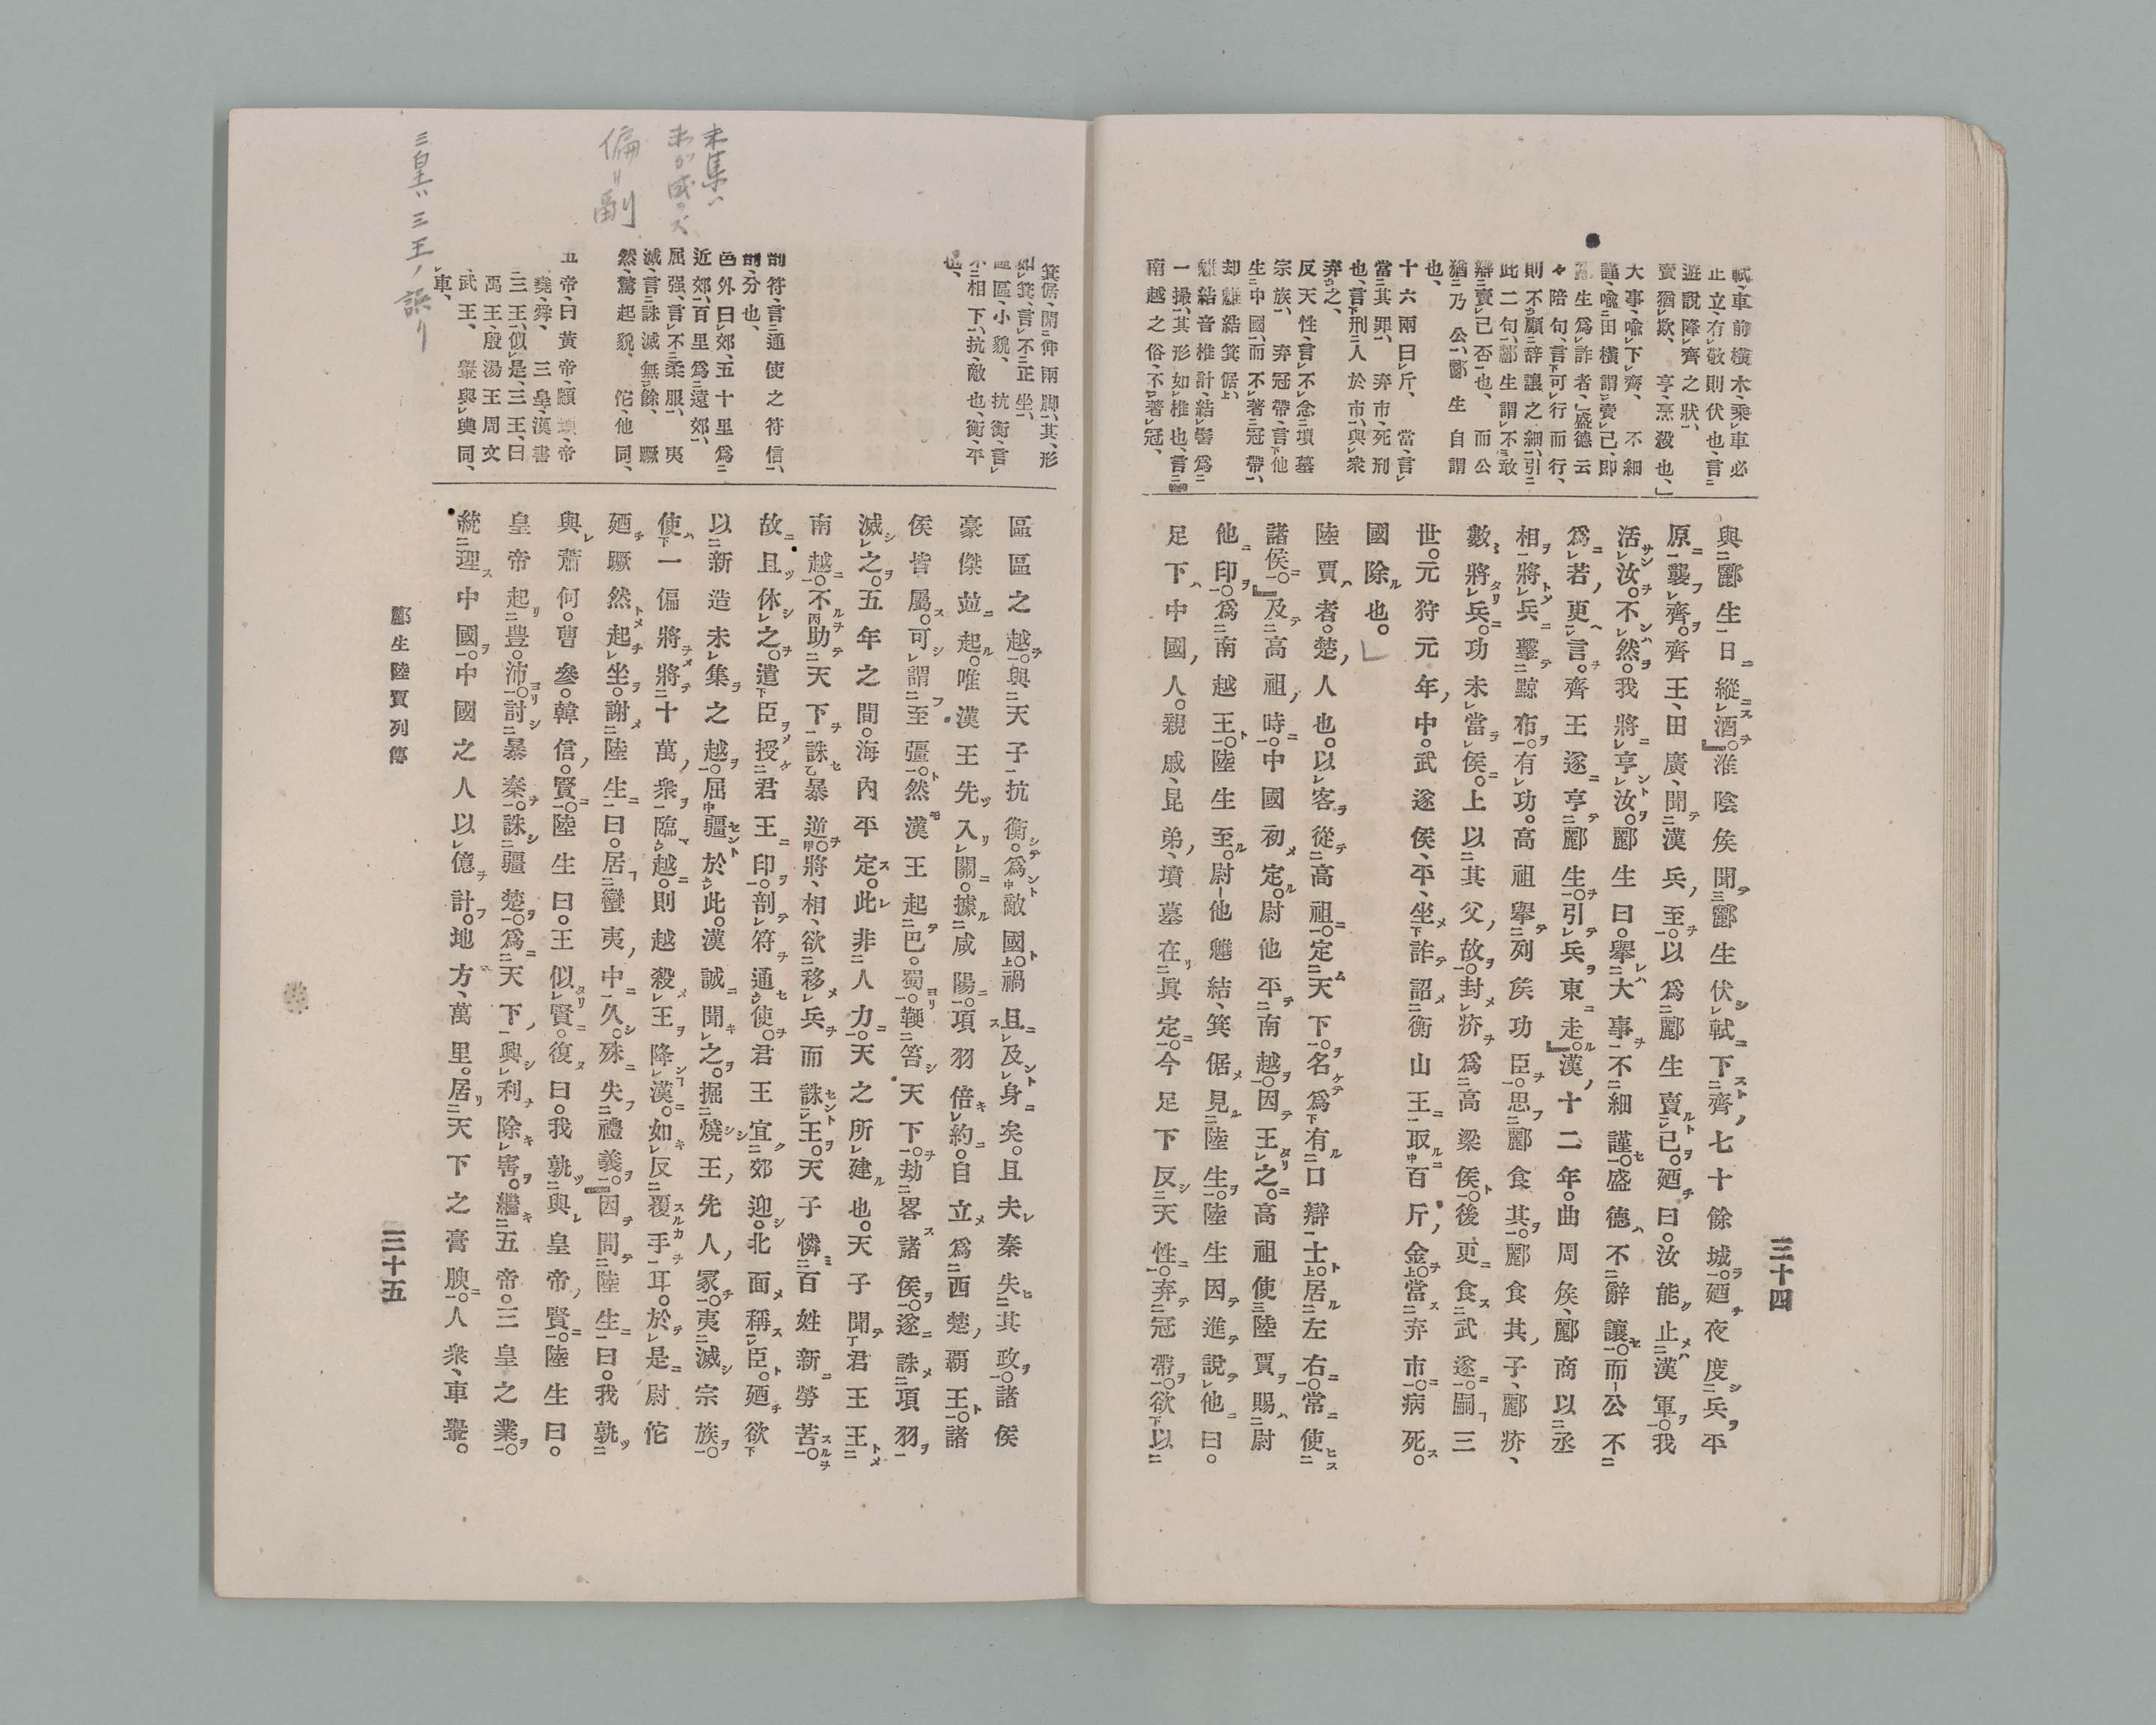 軾、車前橫木、乘車必
止立、有敬則伏也、言
遊説降齊之狀、
賣猶欺、 亨、烹殺也、」
大事、喩下齊、 不細
謹、喩田橫謂賣己、即
生爲詐者、」盛德云
々陪句、言可行而行、
則不顧辞讓之細、引
此二句、酈生謂不敢
辯賣己否也、 而公
猶乃公、酈生自謂
也、
十六兩曰斤、 當、言
當其罪、 弃市、死刑
也、言刑人於市、與衆
弃之、
反天性、言不念墳墓
宗族、 弃冠帶、言他
生中國、而不著冠帶、
却魋結箕倨、
魋結音椎計、結髻爲
一撮、其形如椎也、言
南越之俗、不著冠、
與酈生一日縱酒。』淮陰侯聞酈生伏軾下齊七十餘城。廼夜度兵平
原襲齊。齊王、田廣、聞漢兵至。以爲酈生賣己。廼曰。汝能止漢軍。我
活汝。不然。我將亨汝。酈生曰。擧大事不細謹。盛德不辭讓。而公不
爲若更言。齊王遂亨酈生。引兵東走。』漢十二年。曲周侯、酈商以丞
相將兵擊黥布。有功。高祖擧列侯功臣。思酈食其。酈食其子、酈疥、
數將兵。功未當侯。上以其父故。封疥爲高梁侯。後更食武遂。嗣三
世。元狩元年中。武遂侯、平、坐詐詔衡山王取百斤金。當弃市。病死。
國除也。」
陸賈者。楚人也。以客從高祖。定天下。名爲有口辯士。居左右。常使
諸侯。』及高祖時。中國初定。尉他平南越。因王之。高祖使陸賈賜尉
他印。爲南越王。陸生至。尉他魋結、箕倨見陸生。陸生因進説他曰。
足下中國人。親戚、昆弟、墳墓在眞定。今足下反天性。弃冠帶。欲以
三十四
箕倨、開伸兩脚、其形
如箕、言不正坐、
區區、小貌、 抗衡、言
不相下、抗、敵也、衡、平
也、
剖符、言通使之符信、
剖、分也、
邑外曰郊、五十里爲
近郊、百里爲遠郊、
屈强、言不柔服、 夷
滅、言誅滅無餘、 蹶
然、驚起貌、 佗、他同、
五帝、曰黃帝、顓頊、帝
堯、舜、 三皇、漢書
三王、似是、三王、曰
禹王、殷湯王周文
武王、 轝與輿同、
車、
區區之越。與天子抗衡。爲敵國。禍且及身矣。且夫秦失其政。諸侯
豪傑竝起。唯漢王先入關。據咸陽。項羽倍約。自立爲西楚覇王。諸
侯皆屬。可謂至彊。然漢王起巴。蜀。鞭笞天下。劫畧諸侯。遂誅項羽
滅之。五年之間。海內平定。此非人力。天之所建也。天子聞君王王
南越。不助天下誅暴逆。將、相、欲移兵而誅王。天子憐百姓新勞苦。
故且休之。遣臣授君王印。剖符通使。君王宜郊迎。北面稱臣。廼欲
以新造未集之越。屈彊於此。漢誠聞之。掘燒王先人冢。夷滅宗族。
使一偏將將十萬衆臨越。則越殺王降漢。如反覆手耳。於是尉佗
廼蹶然起坐。謝陸生曰。居蠻夷中久。殊失禮義。』因問陸生曰。我孰
與蕭何。曹參。韓信賢。陸生曰。王似賢。復曰。我孰與皇帝賢。陸生曰。
皇帝起豐。沛。討暴秦。誅彊楚。爲天下興利除害。繼五帝。三皇之業。
統理中國。中國之人以億計。地方、萬里。居天下之膏腴。人衆、車轝。
酈生陸賈列傳
三十五
未集ハ
偏リ副
三皇ハ三王ノ誤リ